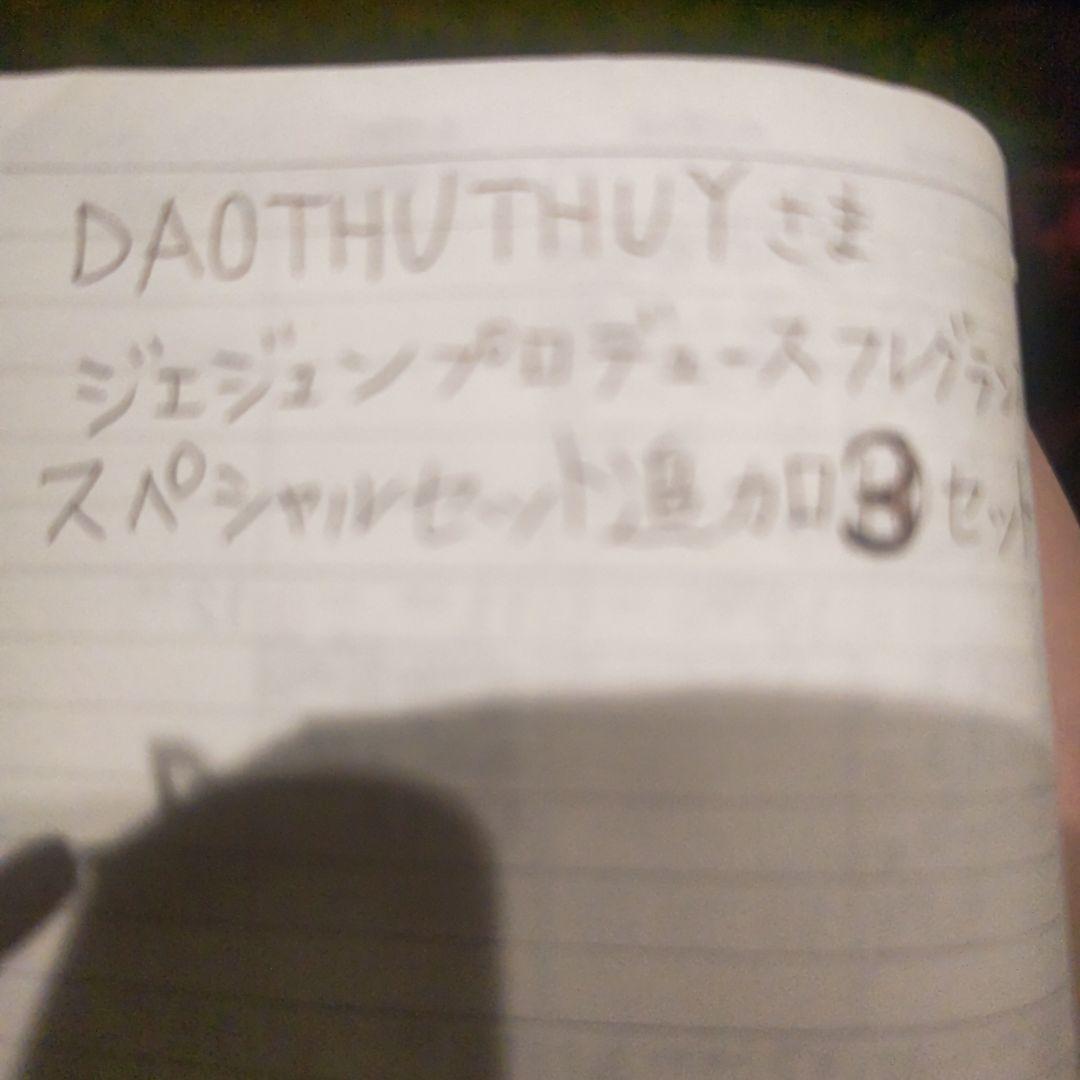 DAOTHUTHUYさま
ジェジュンプロデュースフレグラン
スペシャルセット追加3セット